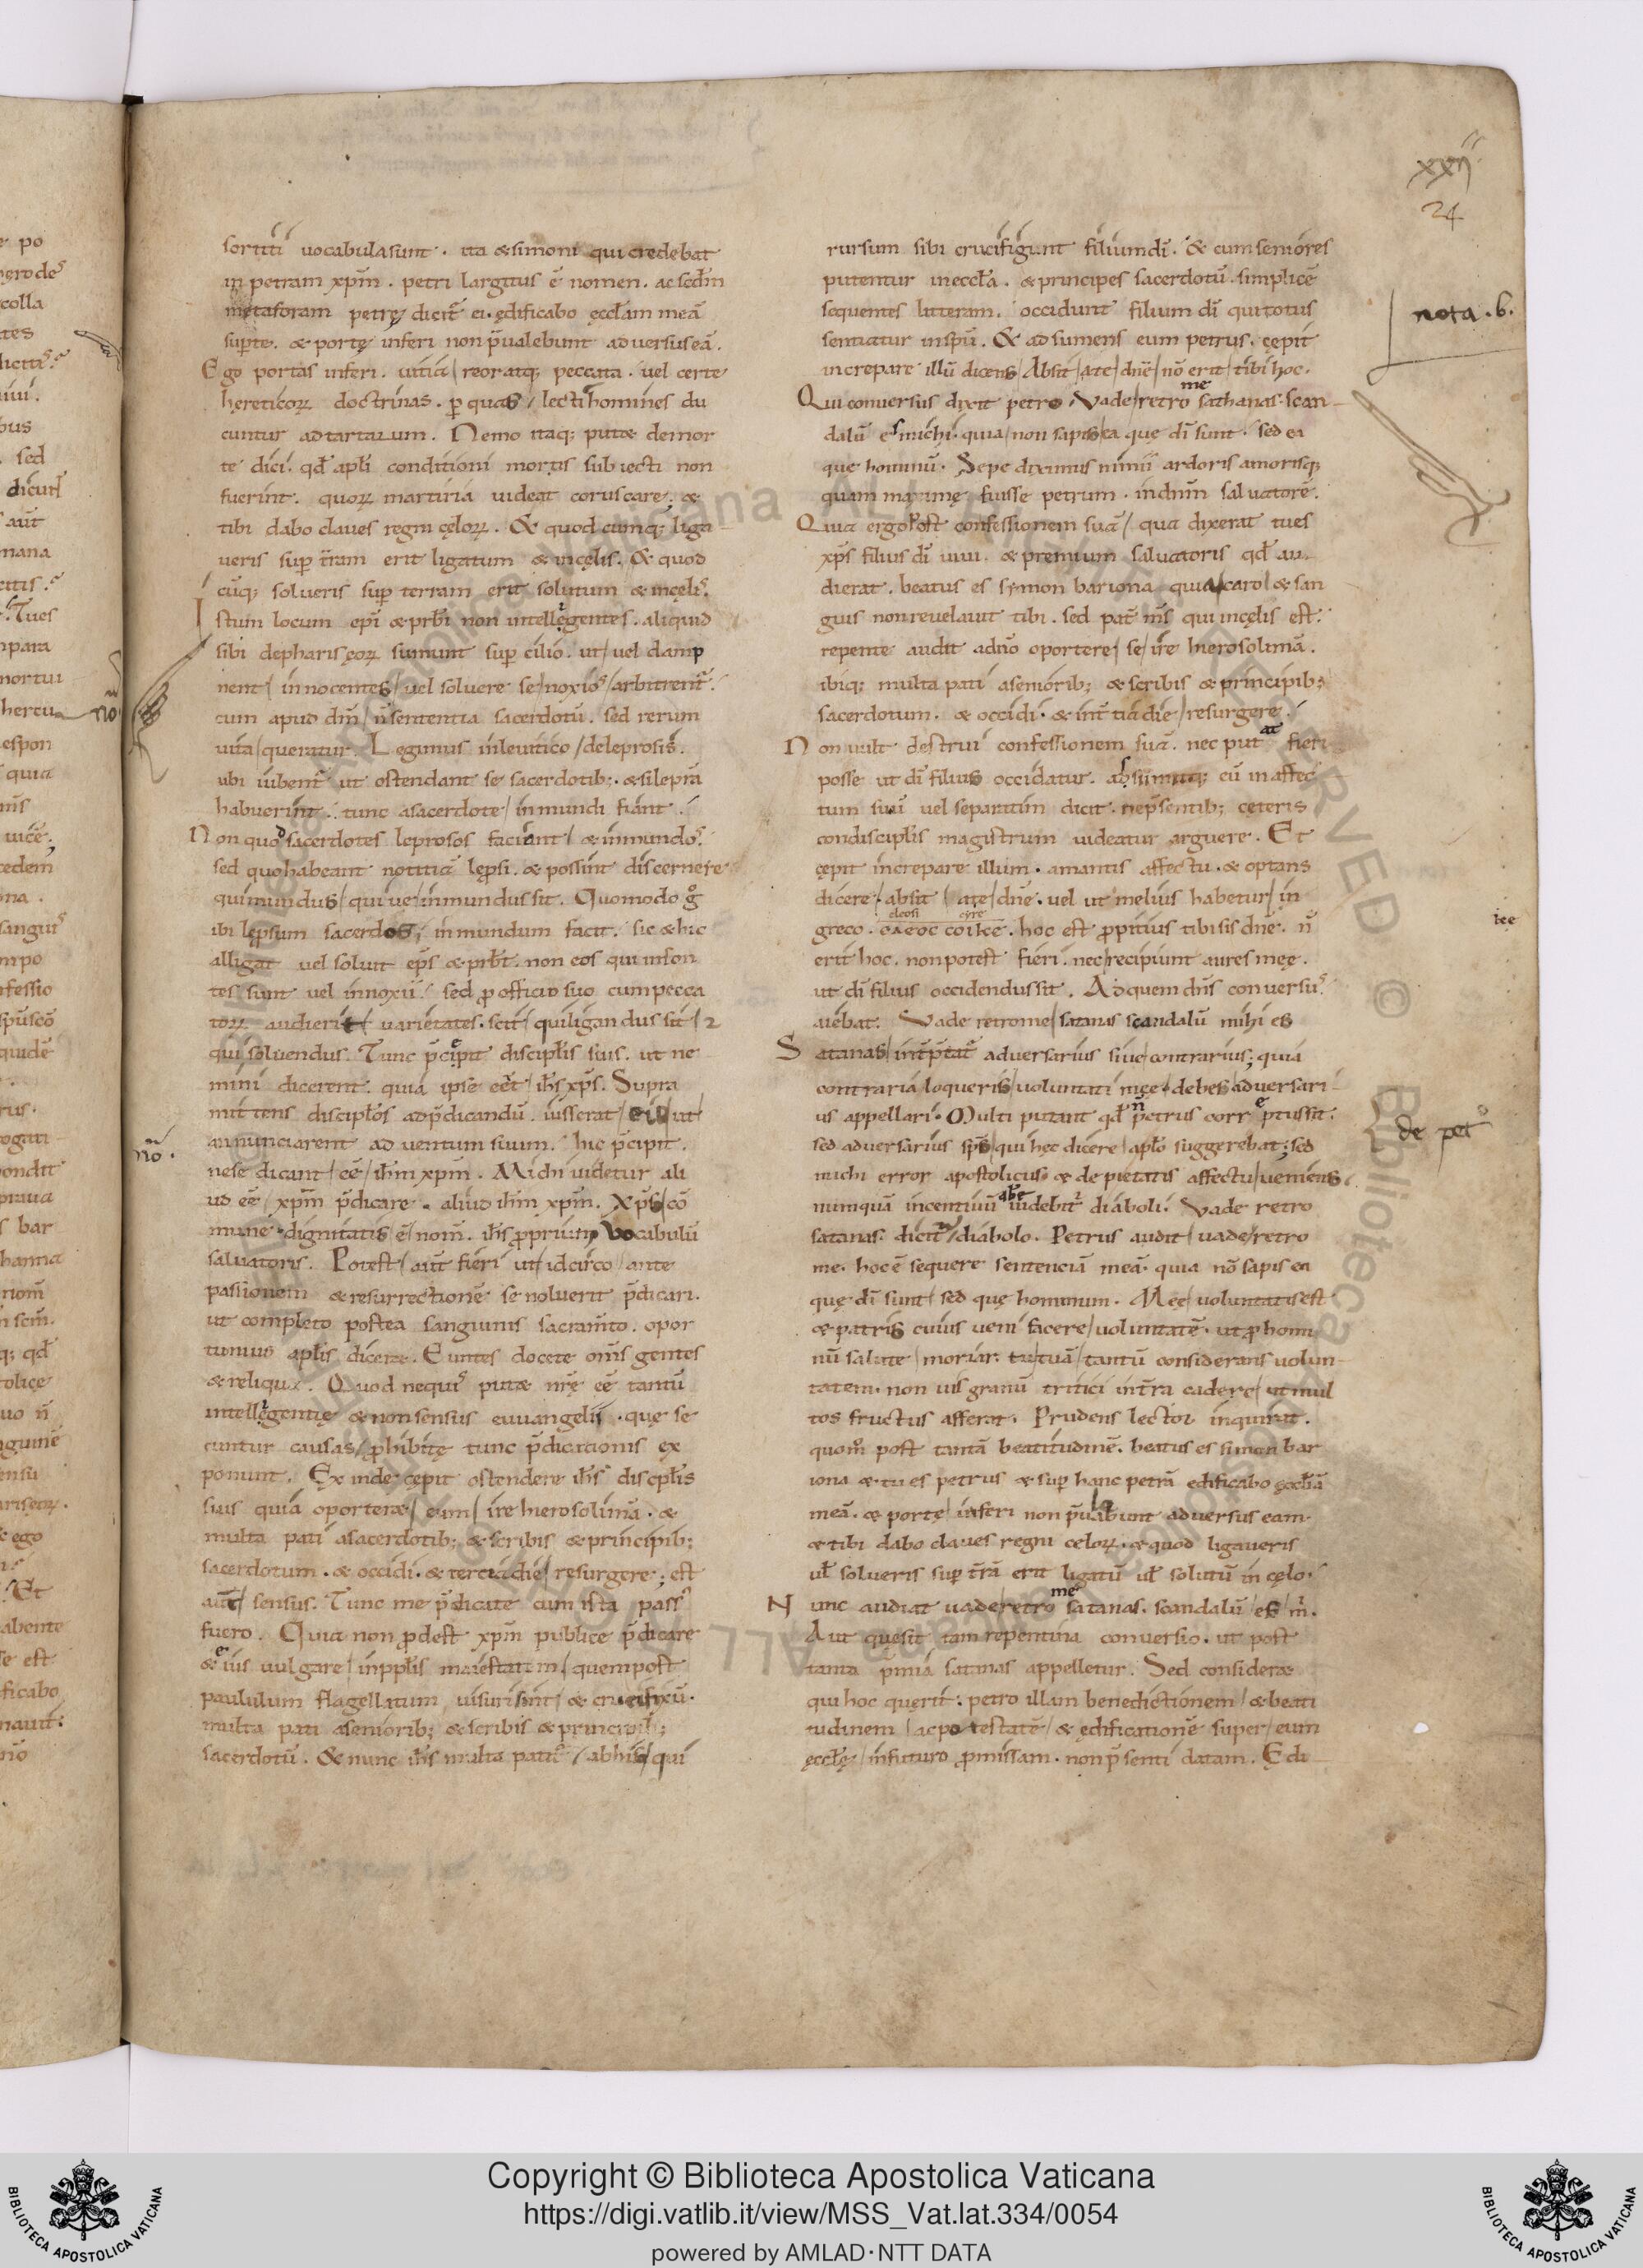 xxii
24
sortiti vocabula sunt. ita & simoni qui credebat
in petram xp̄m. petri largitus ē nomen. ac scd̄m
metaforam petrę dicit̄ ei. ędificabo ęccl̄am meā
sup te. & portę inferi non p̄ualebunt aduersus eā.
Ego portas inferi. uitia / reor atq; peccata. uel certe
hęreticoꝝ doctrinas. p quas / lecti homines du
cuntur ad tartarum. Nemo itaq; putæ de mor
te dici. qd̄ apl̄i conditioni mortis subiecti non
fuerint. quoꝝ martiria uideat coruscare. &
tibi dabo claues regni cęloꝝ. & quodcumq; liga
ueris sup t̄ram erit ligatum & in cęlis. & quod
cūq; solueris sup terram erit solutum & in cęlis.
Istum locum ep̄i & prb̄i non intellegentes. aliquid
sibi de phariseoꝝ sumunt sup cilio. ut / uel damp
nent / innocentes / uel soluere se / noxios / arbitrent̄.
cum apud dm̄ / n̄ sententia sacerdotū. sed rerum
uita / queratur. Legimus in leuitico / de leprosis.
ubi iubent̄ ut ostendant se sacerdotib;. & si leprā
habuerint. tunc a sacerdote / inmundi fiant.
Non quod sacerdotes leprosos faciant / & inmundos.
sed quo habeant notitiā lęprosi. & possint discernere
qui mundus / qui ue / inmundus sit. Quomodo g
ibi leprosum sacerdos / inmundum facit. sic & hic
alligat uel soluit ep̄s & prb̄t. non eos qui inson
tes sunt uel innoxii. sed p officio suo cum pecca
toꝝ audierit / uarietates. scit / qui ligandus sit / 2
qui soluendus. Tunc p̄cepit discipl̄is suis. ut ne
mini dicerent. quia ipse eēt / ih̄s xp̄s. Supra
mittens discipl̄os ad p̄dicandū. iusserat / eis / ut /
annunciarent aduentum suum. hic p̄cipit.
ne se dicant / eē / ih̄m xp̄m. Michi uidetur ali
ud eē / xp̄m p̄dicare. aliud ih̄m xp̄m. Xp̄s / cō
mune dignitatis / ē / nom̄. ih̄s pprium / vocabulū
saluatoris. Potest / aūt fieri ut / idcirco / ante
passionem & resurrectionē se noluerit p̄dicari.
ut completo postea sanguinis sacram̄to. opor
tunius apl̄is diceræ. Euntes docete om̄s gentes
& reliqua. Quod nequis putæ nr̄ę eē tantū
intellegentię & non sensus euuangelii. que se
cuntur causas / phibitę tunc p̄dicationis ex
ponunt. Ex inde cępit ostendere ih̄s discipl̄is
suis quia oporteræ / eum / ire hierosolimā. &
multa pati a sacerdotib; & scribis & principib;
sacerdotum. & occidi. & tercia die / resurgere; est
aūt / sensus. Tunc me p̄dicate cum ista passus
fuero. Quia non pdest xp̄m publice p̄dicare
& eius uulgare / in pp̄lis maiestatem / quem post
paululum flagellatum uisuri sint / & crucifixū.
multa pati a seniorib; & scribis & principib;
sacerdotū. & nunc ih̄s multa patit̄ / ab his / qui
rursum sibi crucifigunt filium dī. & cum seniores
putentur in eccl̄a. & principes sacerdotū. simplicē
sequentes litteram. occidunt filium dī qui totus
sentiatur in spū. & adsumens eum petrus. cępit
increpare illū dicens / Absit / a te / dn̄e / nō erit / tibi hoc.
me
Qui conuersus dixit petro / Vade / retro sathanas. scan
dalū es michi. quia / non sapis / ea que dī sunt. sed ea
que hominū. Sepe diximus nimii ardoris amorisq;
quam maximę fuisse petrum. in dn̄m saluatorē.
Quia ergo post confessionem suā / qua dixerat tu es
xp̄s filius dī uiui. & premium saluatoris qd̄ au
dierat. beatus es symon bariona quia / caro / & san
guis non reuelauit tibi. sed pat̄ m̄s qui in cęlis est.
repente audit a dn̄o oportere / se / ire hierosolimā.
ibiq; multa pati a seniorib; & scribis & principib;
sacerdotum. & occidi. & int̄ tia die / resurgere.
at
Non uult destrui confessionem suā. nec put fieri
posse ut dī filius occidatur. absumitq; eū in affec
tum suū uel separatim dicit. ne p̄sentib; ceteris
condiscipl̄is magistrum uideatur arguere. Et
cępit increpare illum. amantis affectu. & optans
dicere. absit / a te / dn̄e. uel ut melius habetur / in
eleosi cyrie
greco. ΟΛΕΟC COIKE. hoc est ppitius tibi sis dn̄e. n̄
erit hoc. non potest fieri. nec / recipiunt aures meę.
ut dī filius occidendus sit. Ad quem dn̄s conuersus
aiebat. Vade retro me / satanas scandalū mihi es
Satanas / int̄p̄tat̄ aduersarius siue / contrarius; quia
contraria / loqueris / uoluntati meę. debes / aduersari
us appellari. Multi putant qd̄ n̄ petrus correptus sit.
sed aduersarius sp̄s / qui hęc dicere / aplo suggerebat; sed
michi error apostolicus & de pietatis affectu / ueniens.
numquā incentiuū uidebit̄ diaboli. Vade retro
satanas. dicit̄ / diabolo. Petrus audit / uade / retro
me. hoc ē sequere sentenciā meā. quia nō sapis ea
quę dī sunt / sed quę hominum. Mee / uoluntatis est
& patris cuius ueni facere / uoluntatē. ut p homi
nū salute / moriar. tu tuā / tantū considerans uolun
tatem. non uis granū tritici in t̄ra cadere / ut mul
tos fructus afferat. Prudens lector inquirat.
quom̄ post tantā beatitudinē. beatus es simon bar
iona & tu es petrus & sup hanc petrā edificabo ęccl̄iā
meā. & portę / inferi non p̄ualebunt aduersus eam.
& tibi dabo claues regni celoꝝ. & quod ligaueris
ul̄ solueris sup t̄rā erit ligatū ul̄ solutū in cęlo.
me
Nunc audiat uade retro satanas. scandalū / es / m̄.
Aut que sit tam repentina conuersio. ut post
tanta p̄mia satanas appelletur. Sed consideræ
qui hoc querit. petro illam benedictionem / & beati
tudinem / ac potestatē / & ędificationē super / eum
ęccl̄ę / in futuro pmissam. non p̄senti datam. Edi
nota .b.
de pet
no
no.
Copyright © Biblioteca Apostolica Vaticana
https://digi.vatlib.it/view/MSS_Vat.lat.334/0054
powered by AMLAD·NTT DATA
BIBLIOTECA APOSTOLICA VATICANA
BIBLIOTECA APOSTOLICA VATICANA